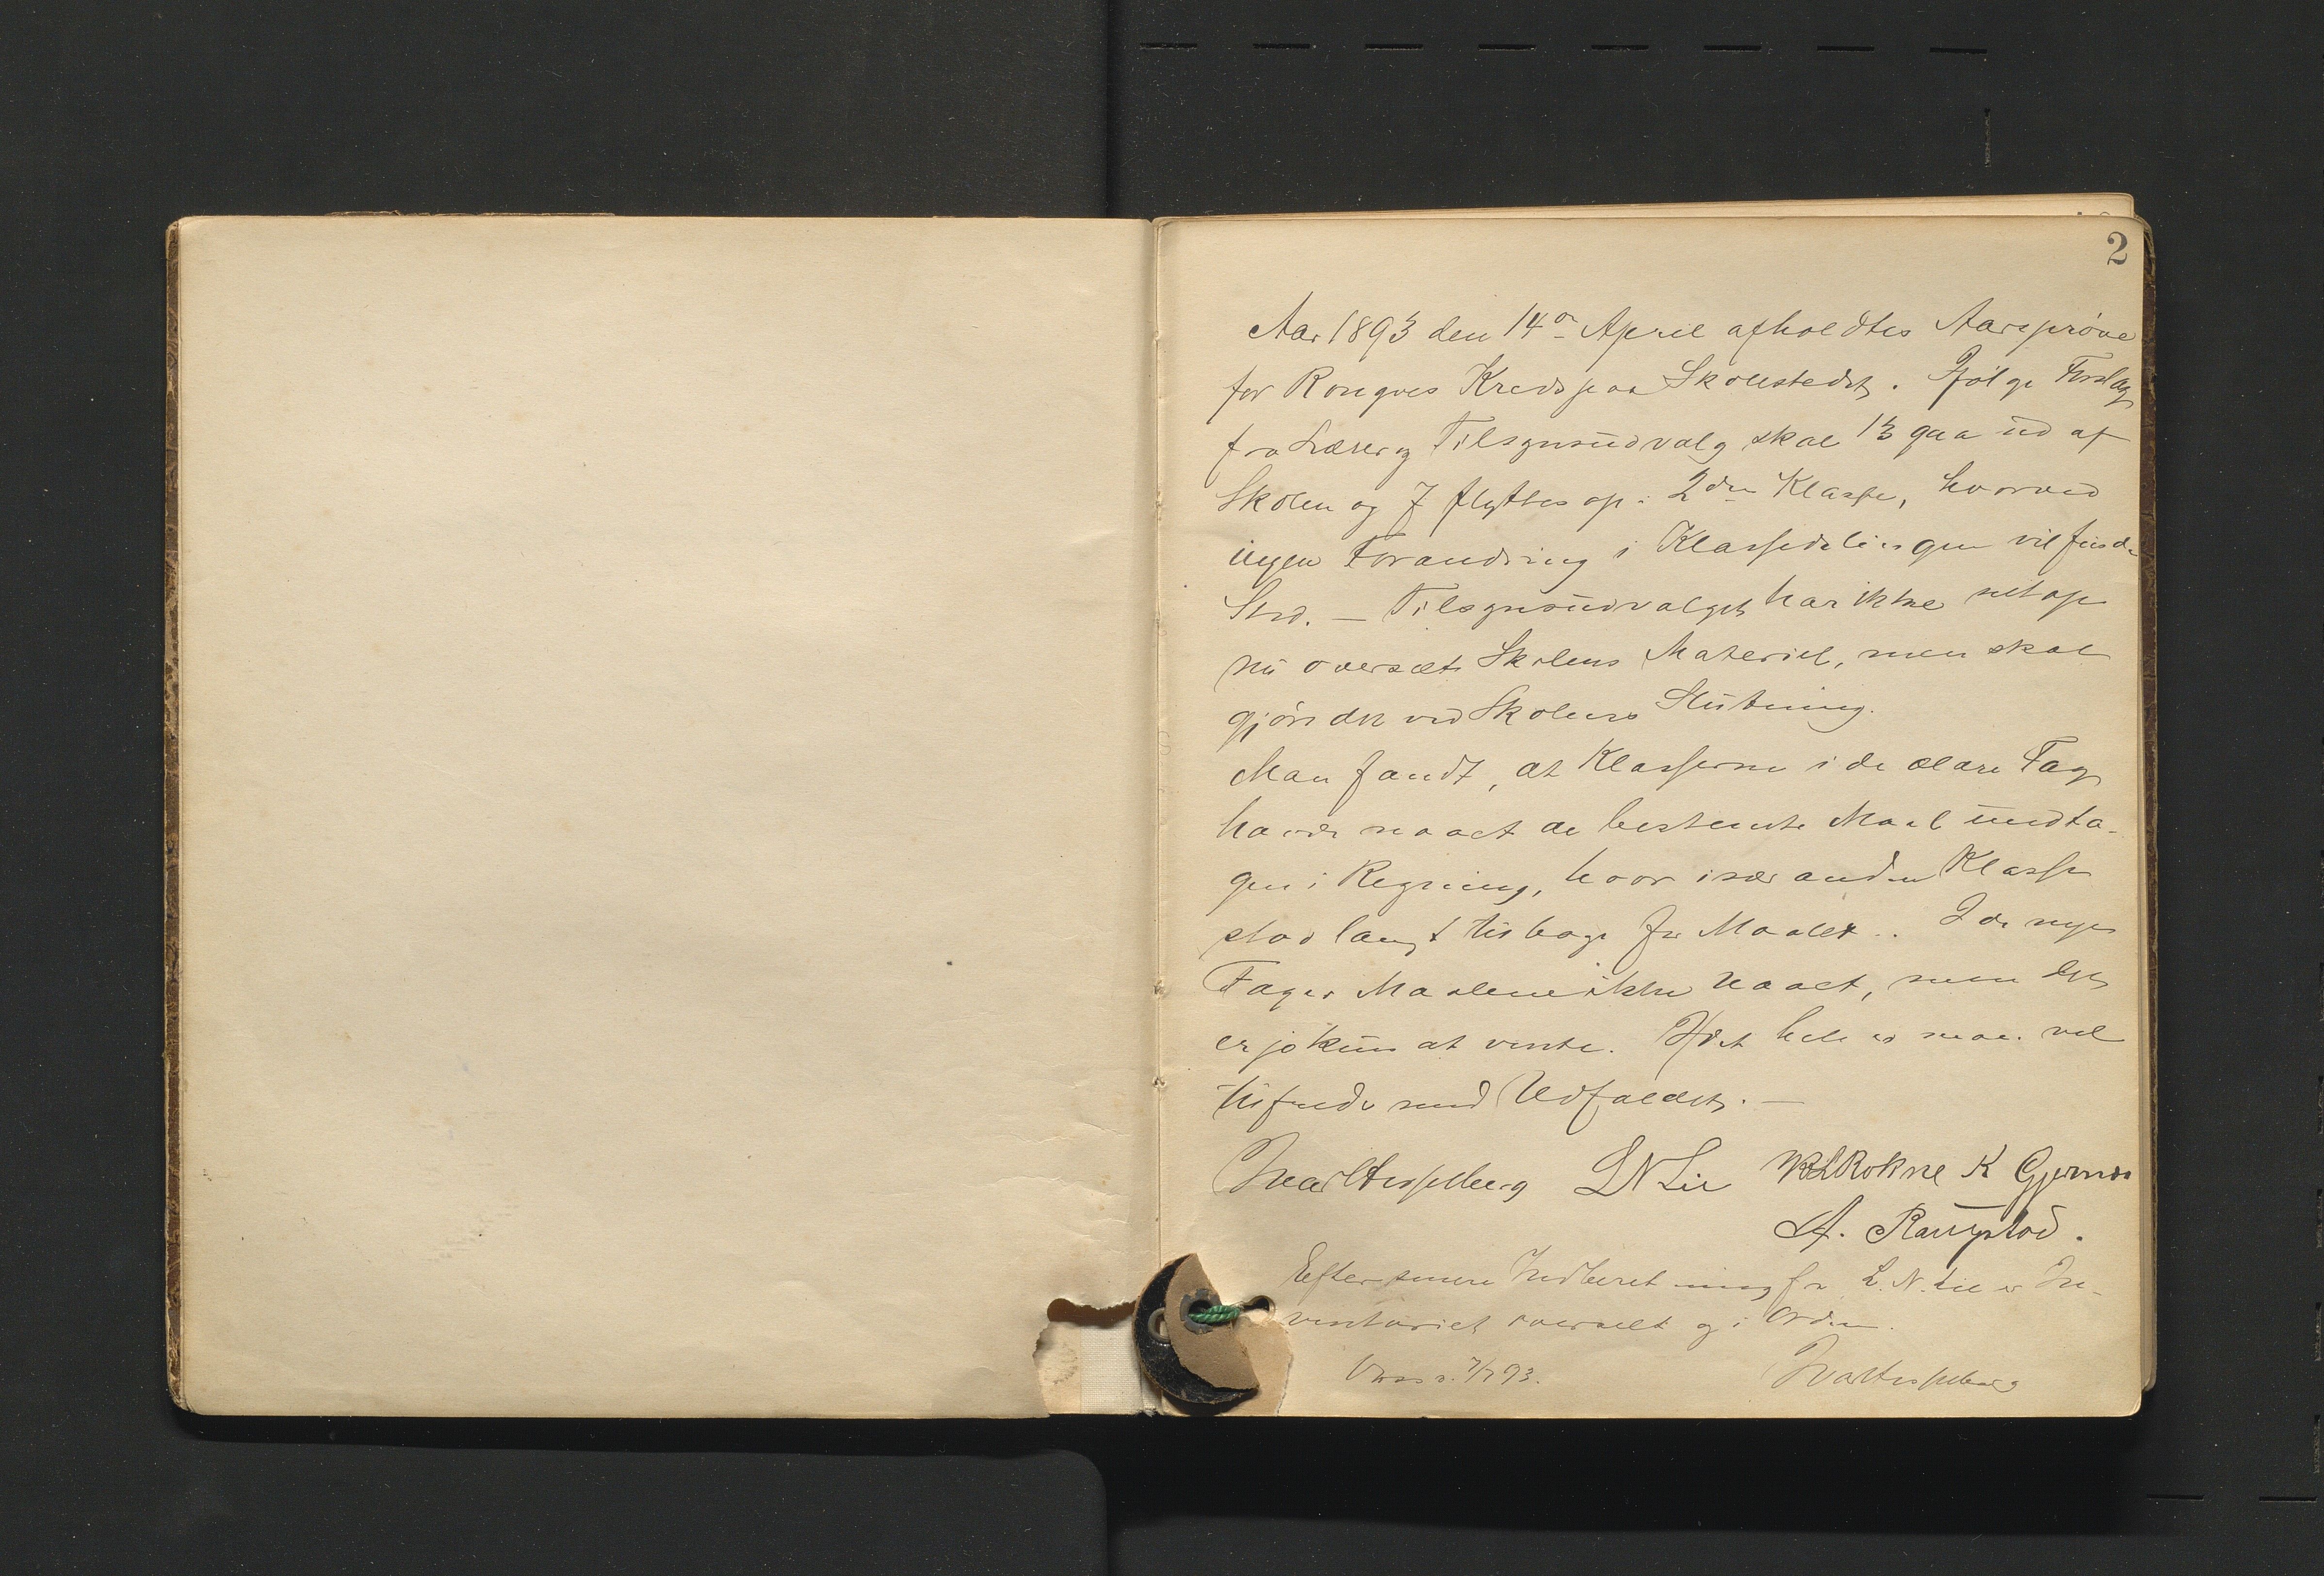 2
Aar 1893 den 14de April afholdtes Aarsprøve
for Rongves Kreds paa Skolestedet. Ifølge Forslag
fra Lærer og Tilsynsudvalg skal 13 gaa ud af
Skolen og 7 flyttes op i 2den Klasse, hvorved
ingen Forandring i Klassedelingen vil finde
Sted. — Tilsynsudvalget har ikke netop
nu overseet Skolens Materiel, men skal
gjøre det ved Skolens Slutning.
Man fandt, at Klasserne i de ældre Fag
havde naaet de bestemte Maal undta-
gen i Regning, hvor især anden Klasse
stod langt tilbage for Maalet. I de nye
Fag er Maalene ikke naaet, men det
er jo kun at vente. I det hele er man vel
tilfreds med Udfaldet. —
L N Lie Rokne K Gjernes
A.
Efter senere Indberetning fra L. N. Lie er In-
ventariet overseet og i Orden.
Voss d. 7/7 93.